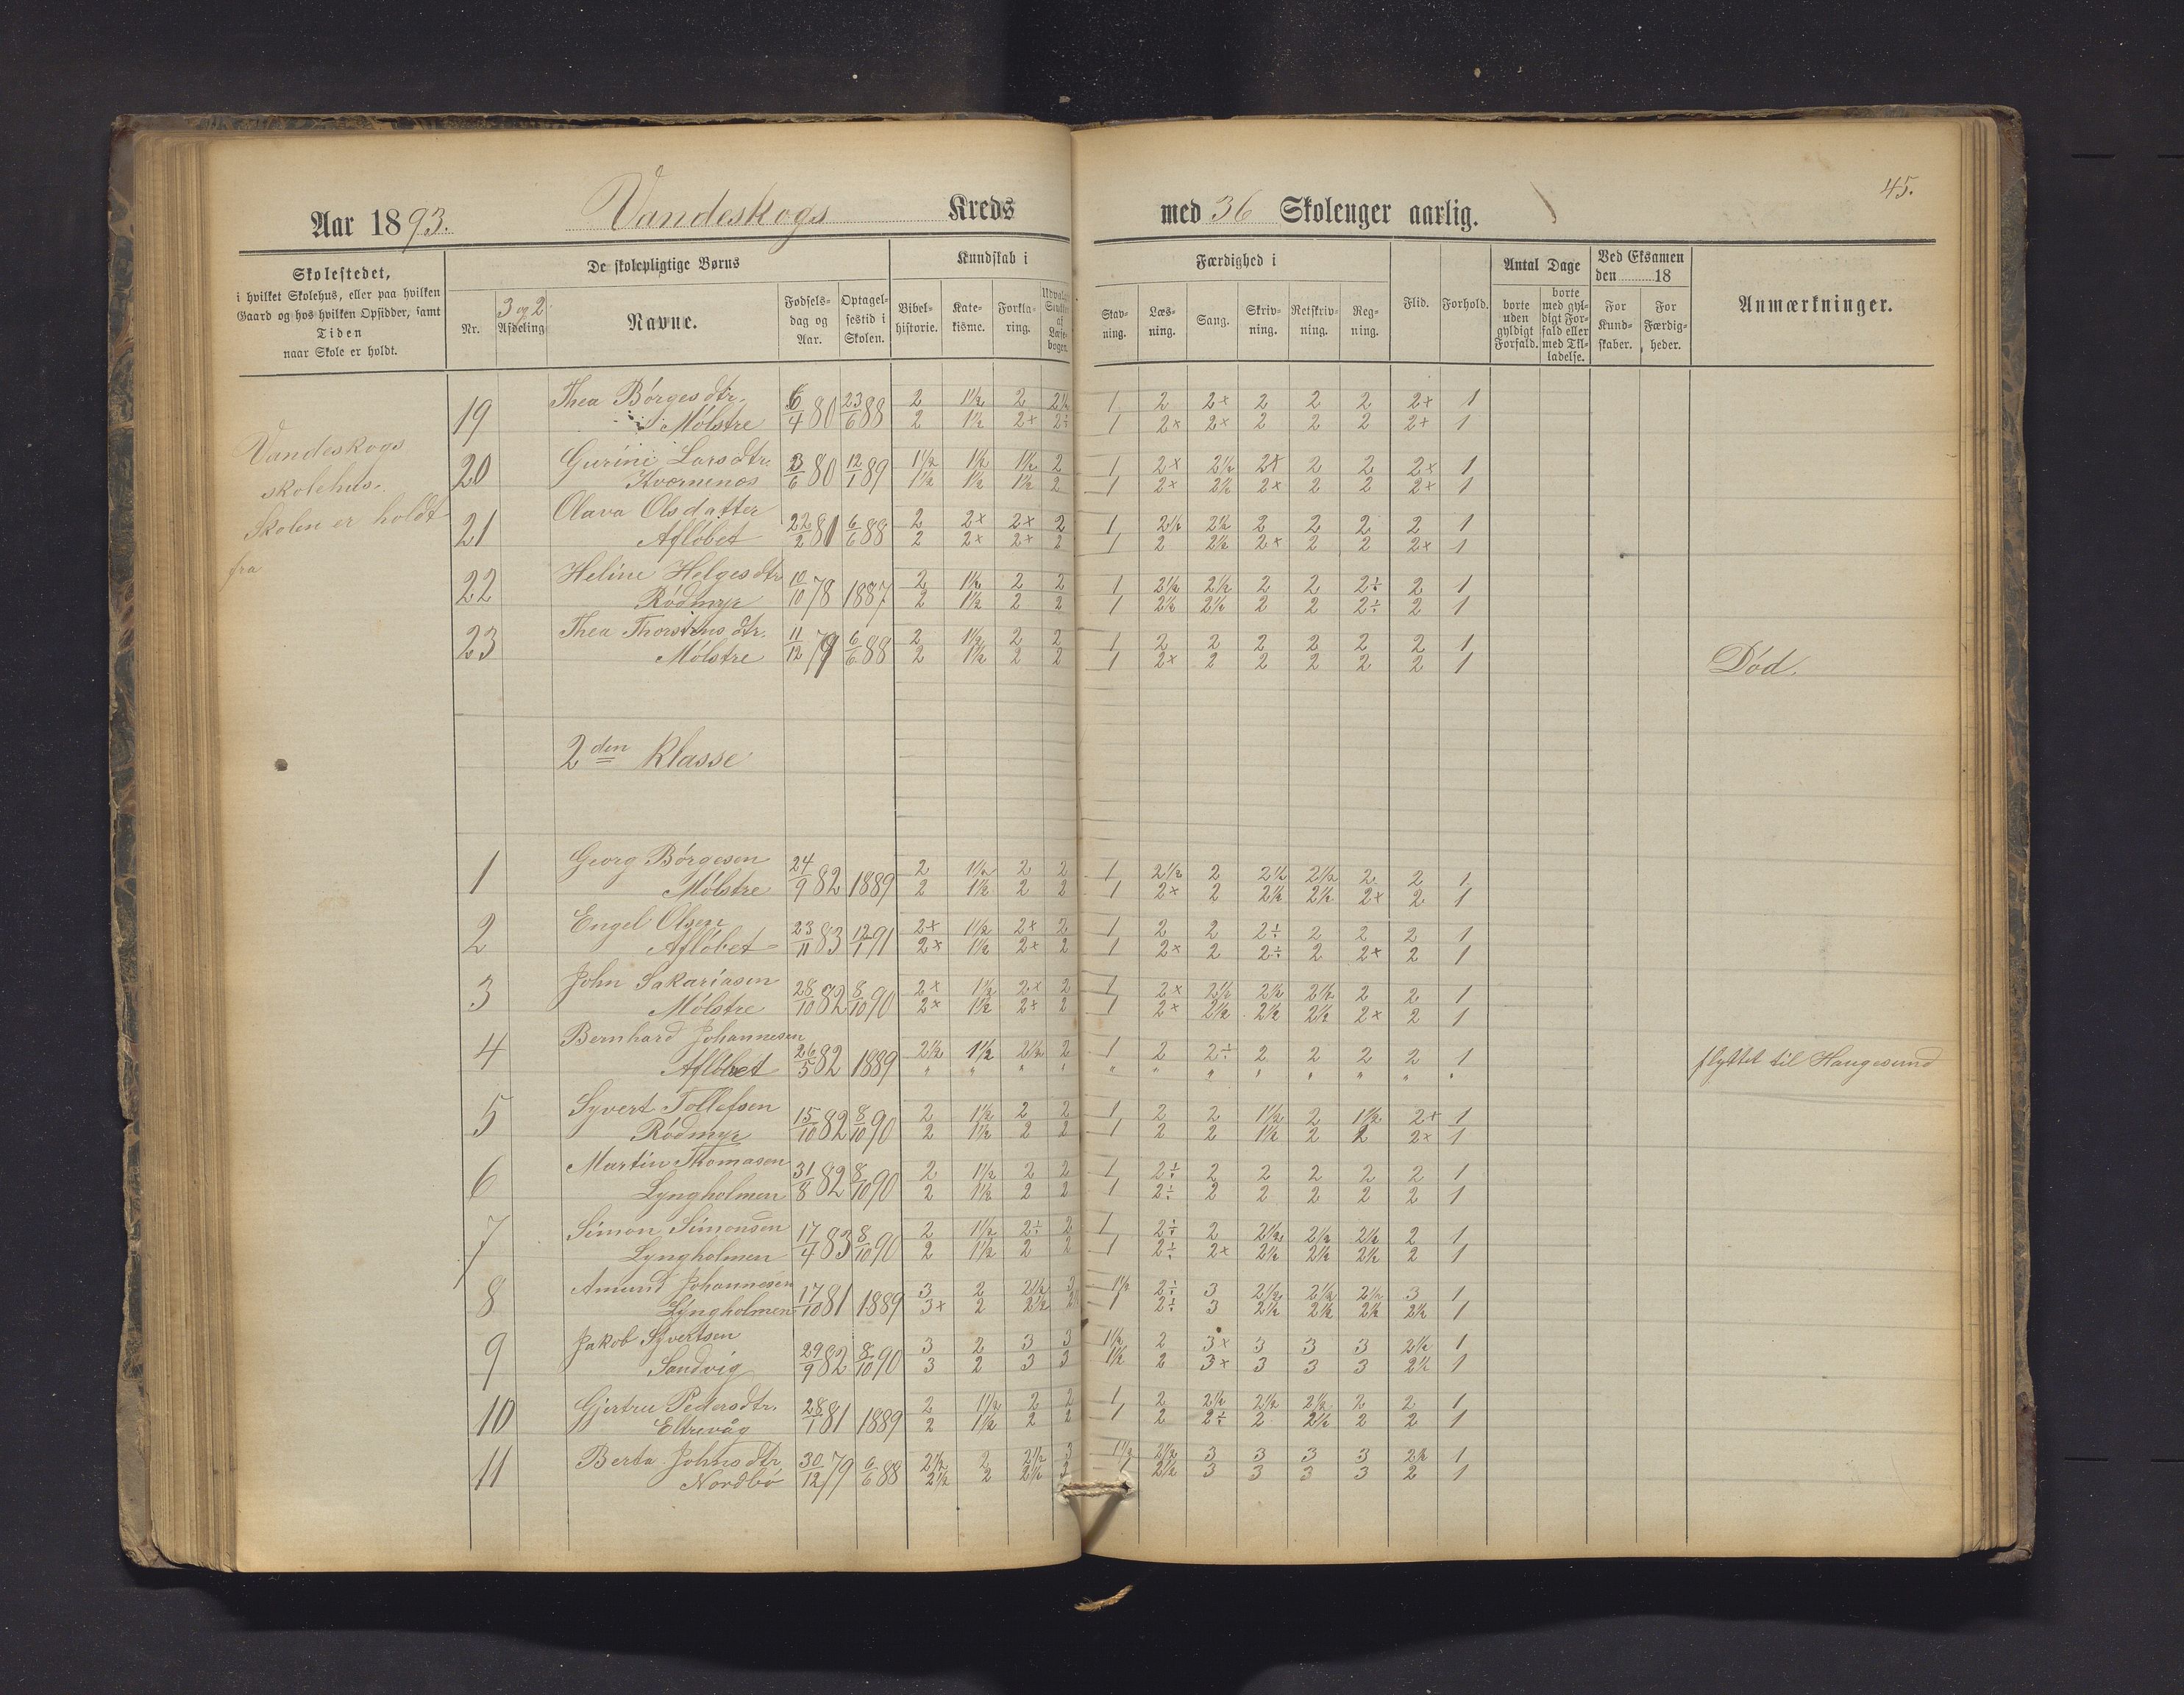 Aar 1893. Vandeskogs Kreds med 36 Skoleuger aarlig. 45.
Skolestedet,
i hvilket Skolehus, eller paa hvilken
Gaard og hos hvilken Opsidder, samt
Tiden
naar Skole er holdt.
De skolepligtige Børns
Nr.
3 og 2.
Afdeling
Navne.
Fødsels-
dag og
Aar.
Optagel-
sestid i
Skolen.
Kundskab i
Bibel-
historie.
Kate-
kisme.
Forkla-
ring.
Færdighed i
Stav-
ning.
Læs-
ning.
Sang.
Skriv-
ning.
Retskriv-
ning.
Reg-
ning.
Flid.
Forhold.
Antal Dage
borte
uden
gyldigt
Forfald.
borte
med gyl-
digt For-
fald eller
med Til-
ladelse.
Ved Eksamen
den 18
For
Kund-
skaber.
For
Færdig-
heder.
Anmærkninger.
Vandeskogs
skolehus.
Skolen er holdt
fra
19 Thea Børgesdtr. 6/4 80 23/6 88 2 1½ 2 2½ 1 2 2+ 2 2 2 2+ 1
Mølstre 2 1½ 2+ 2÷ 1 2+ 2+ 2 2 2 2+ 1
20 Gurine Larsdtr. 3/6 80 12/1 89 1½ 1½ 1½ 2 1 2+ 2½ 2+ 2 2 2+ 1
Kvernenes 1½ 1½ 1½ 2 1 2+ 2½ 2+ 2 2 2+ 1
21 Olava Olsdatter 22/2 81 6/6 88 2 2+ 2+ 2 1 2½ 2½ 2 2 2 2 1
Afløbet 2 2+ 2+ 2 1 2 2½ 2+ 2 2 2+ 1
22 Heline Helgesdtr 10/10 78 1887 2 1½ 2 2 1 2½ 2½ 2 2 2÷ 2 1
Rødmyr 2 1½ 2 2 1 2½ 2½ 2 2 2÷ 2 1
23 Thea Thorstensdtr. 11/12 79 6/6 88 2 1½ 2 2 1 2 2 2 2 2 2 1
Mølstre 2 1½ 2 2 1 2+ 2 2 2 2 2 1 Død.
2den Klasse
1 Georg Børgesen 24/9 82 1889 2 1½ 2 2 1 2½ 2 2½ 2½ 2 2 1
Mølstre 2 1½ 2 2 1 2+ 2 2½ 2½ 2+ 2 1
2 Engel Olsen 23/11 83 12/1 91 2+ 1½ 2+ 2 1 2 2 2÷ 2 2 2 1
Afløbet 2+ 1½ 2+ 2 1 2+ 2 2÷ 2 2+ 2 1
3 John Sakariasen 28/10 82 8/10 90 2+ 1½ 2+ 2 1 2+ 2½ 2½ 2½ 2 2 1
Mølstre 2+ 1½ 2+ 2 1 2+ 2½ 2½ 2½ 2+ 2 1
4 Bernhard Johannesen 26/5 82 1889 2½ 1½ 2½ 2 1 2 2÷ 2 2 2 2 1 flyttet til Haugesund
Afløbet " " " " " " " " " " " "
5 Syvert Tollefsen 15/10 82 8/10 90 2 1½ 2 2 1 2 2 1½ 2 1½ 2+ 1
Rødmyr 2 1½ 2 2 1 2 2 1½ 2 2 2+ 1
6 Martin Thomasen 31/8 82 8/10 90 2 1½ 2 2 1 2÷ 2 2 2 2 2 1
Lyngholmen 2 1½ 2 2 1 2÷ 2 2 2 2 2 1
7 Simon Simonsen 17/4 83 8/10 90 2 1½ 2÷ 2 1 2÷ 2 2½ 2½ 2½ 2 1
Lyngholmen 2 1½ 2 2 1 2÷ 2+ 2½ 2½ 2½ 2 1
8 Amund Johannesen 17/10 81 1889 3 2 2½ 3 1½ 2÷ 3 2½ 2½ 2½ 3 1
Lyngholmen 3+ 2 2½ 1 2÷ 3 2½ 2½ 2½ 2½ 1
9 Jakob Syvertsen 29/9 82 8/10 90 3 2 3 3 1½ 2 3+ 3 3 3 2½ 1
Sandvig 3 2 3 3 1½ 2 3+ 3 3 3 2½ 1
10 Gjertru Pedersdtr. 28/1 81 1889 2 1½ 2 2 1 2 2½ 2½ 2½ 2 2 1
Eltrevåg 2 1½ 2 2 1 2 2÷ 2 2½ 2 2 1
11 Berta Johnsdtr 30/12 79 6/6 88 2½ 2 2½ 3 1½ 2½ 3 3 3 3 2½ 1
Nordbø 2½ 2 2½ 3 1 2½ 3 3 3 3 2 1